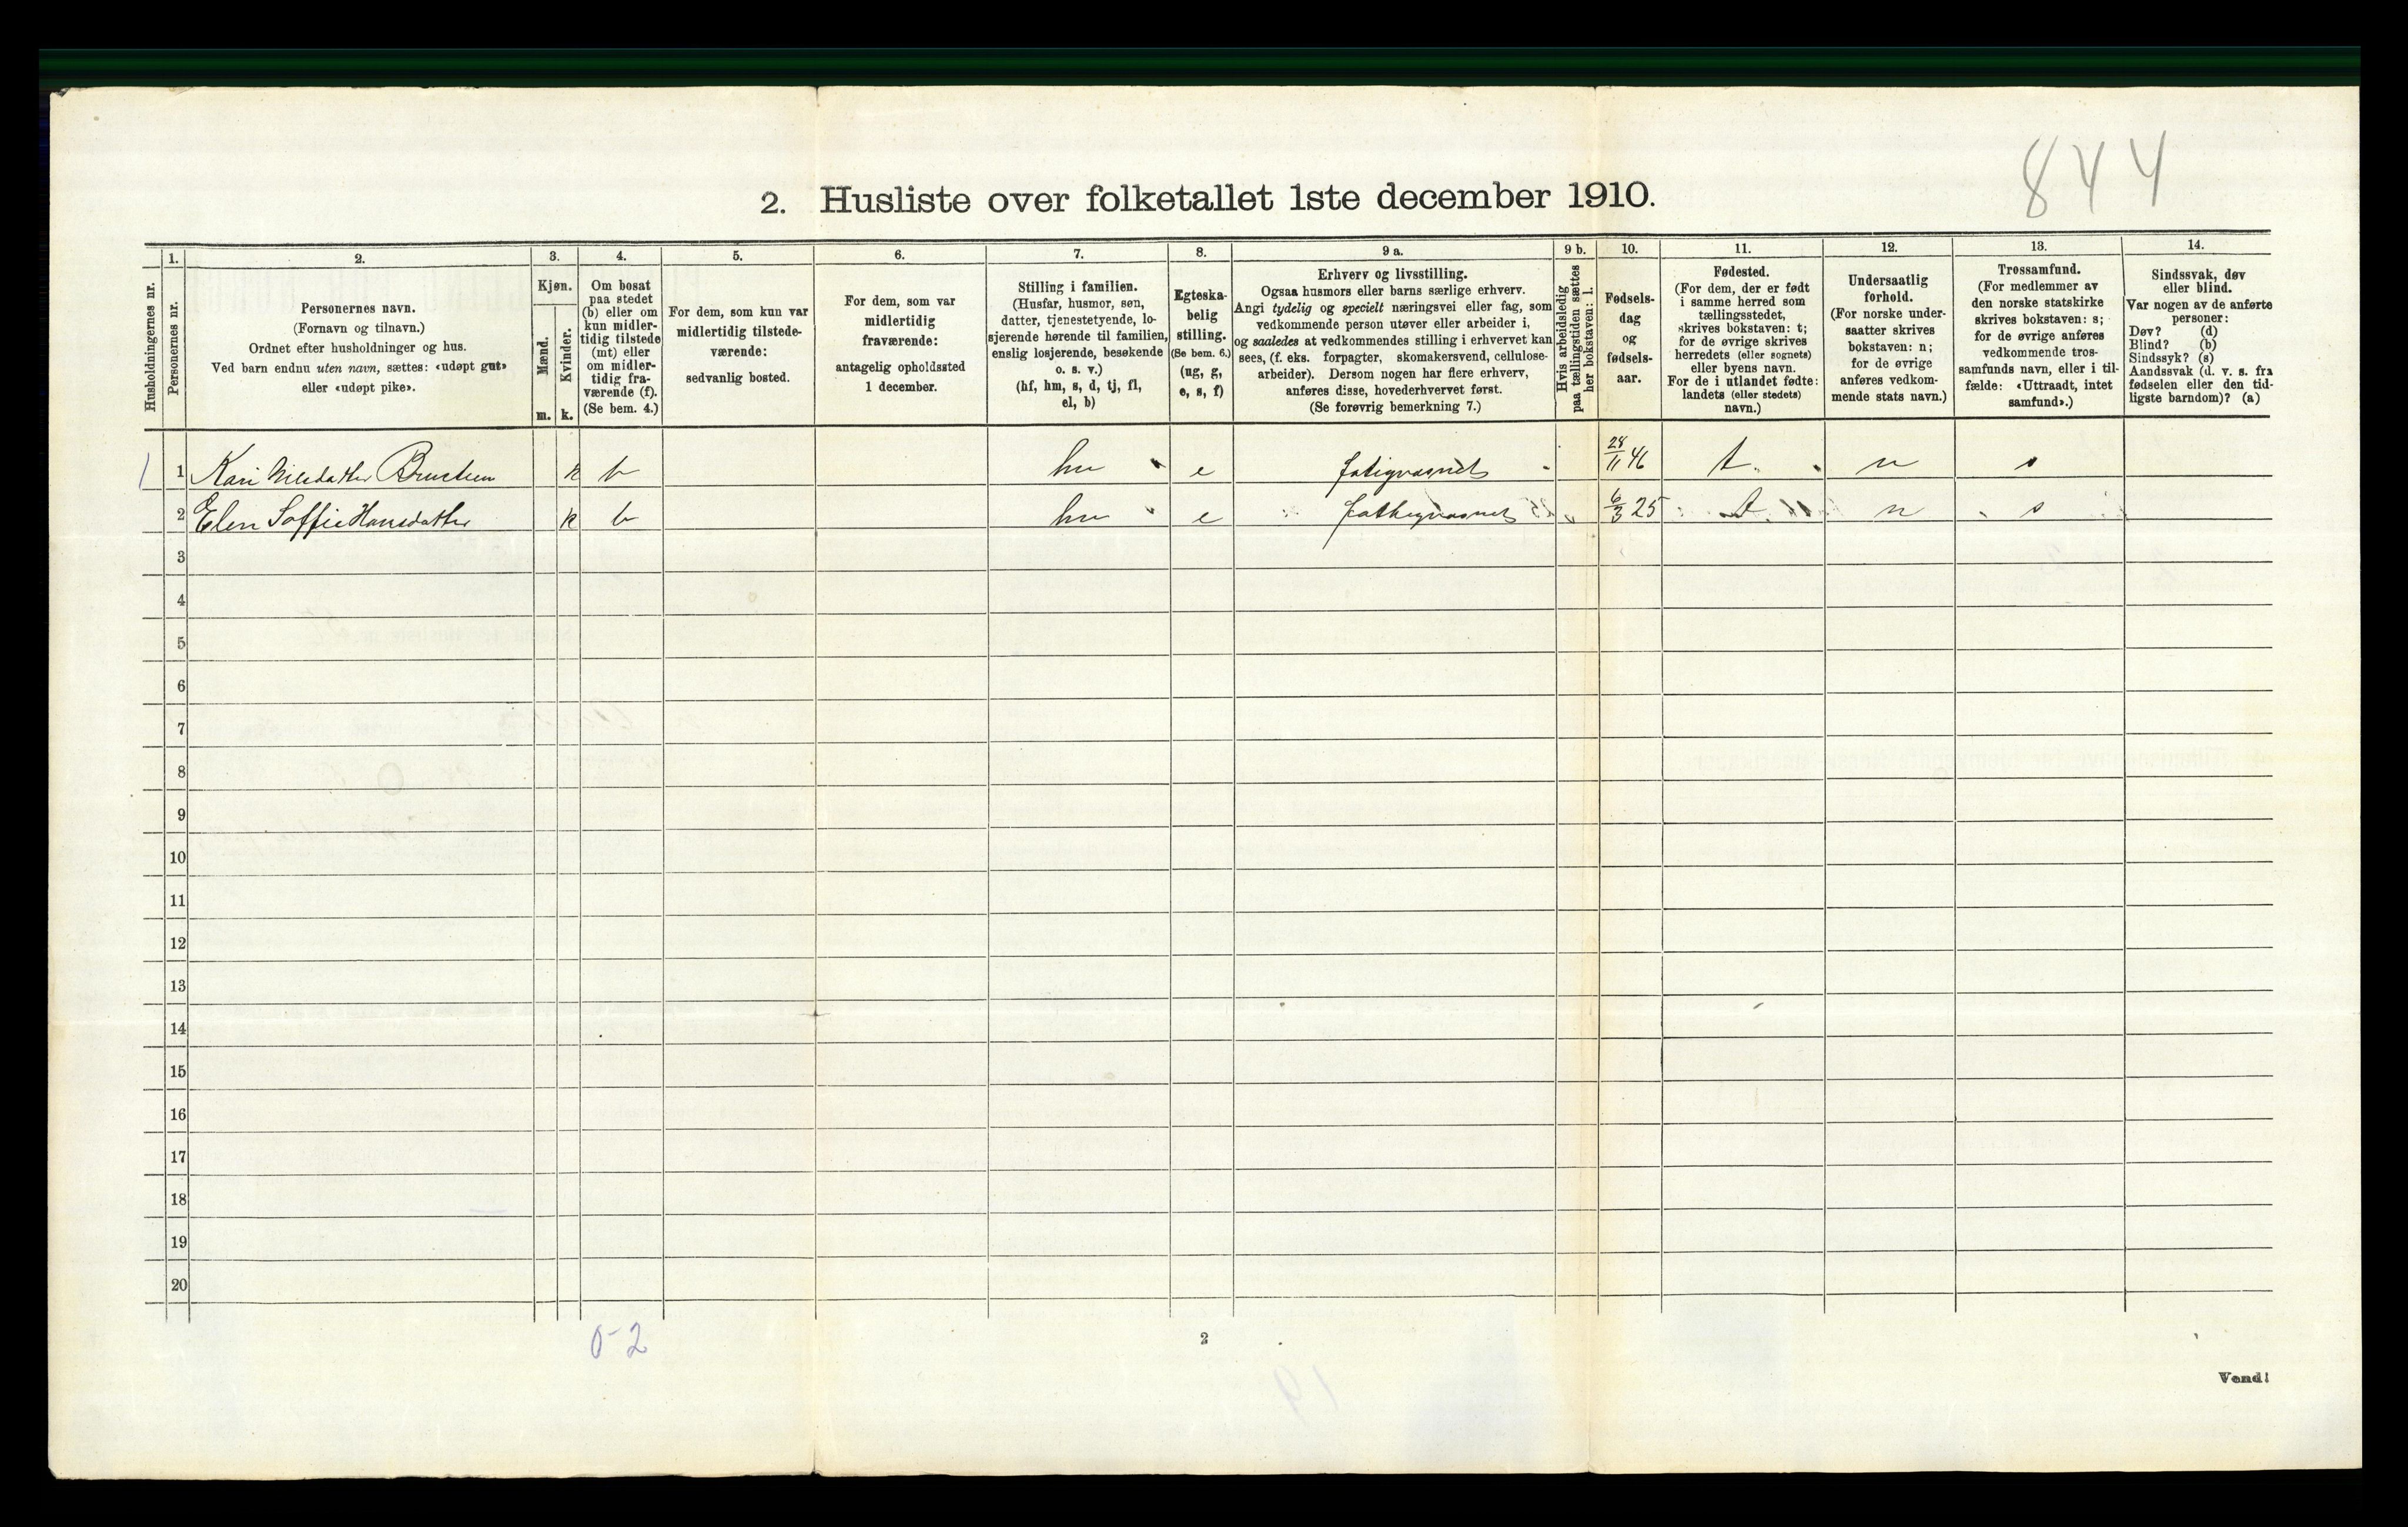 844
2. Husliste over folketallet 1ste december 1910.
Husholdningernes nr.
1.
Personernes nr.
2.
Personernes navn.
(Fornavn og tilnavn.)
Ordnet efter husholdninger og hus.
Ved barn endnu uten navn, sættes: «udøpt gut»
eller «udøpt pike».
3.
Kjøn.
Mænd.
m.
Kvinder.
k.
4.
Om bosat
paa stedet
(b) eller om
kun midler-
tidig tilstede
(mt) eller
om midler-
tidig fra-
værende (f).
(Se bem. 4.)
5.
For dem, som kun var
midlertidig tilstede-
værende:
sedvanlig bosted.
6.
For dem, som var
midlertidig
fraværende:
antagelig opholdssted
1 december.
7.
Stilling i familien.
(Husfar, husmor, søn,
datter, tjenestetyende, lo-
sjerende hørende til familien,
enslig losjerende, besøkende
o. s. v.)
(hf, hm, s, d, tj, fl,
el, b)
8.
Egteska-
belig
stilling.
(Se bem. 6.)
(ug, g,
e, s, f)
9 a.
Erhverv og livsstilling.
Ogsaa husmors eller barns særlige erhverv.
Angi tydelig og specielt næringsvei eller fag, som
vedkommende person utøver eller arbeider i,
og saaledes at vedkommendes stilling i erhvervet kan
sees, (f. eks. forpagter, skomakersvend, cellulose-
arbeider). Dersom nogen har flere erhverv,
anføres disse, hovederhvervet først.
(Se forøvrig bemerkning 7.)
9 b.
Hvis arbeidsledig
paa tællingstiden sættes
her bokstaven: l.
10.
Fødsels-
dag
og
fødsels-
aar.
11.
Fødested.
(For dem, der er født
i samme herred som
tællingsstedet,
skrives bokstaven: t;
for de øvrige skrives
herredets (eller sognets)
eller byens navn.
For de i utlandet fødte:
landets (eller stedets)
navn.)
12.
Undersaatlig
forhold.
(For norske under-
saatter skrives
bokstaven: n;
for de øvrige
anføres vedkom-
mende stats navn.)
13.
Trossamfund.
(For medlemmer av
den norske statskirke
skrives bokstaven: s;
for de øvrige anføres
vedkommende tros-
samfunds navn, eller i til-
fælde: «Uttraadt, intet
samfund».)
14.
Sindssvak, døv
eller blind.
Var nogen av de anførte
personer:
Døv? (d)
Blind? (b)
Sindssyk? (s)
Aandssvak (d. v. s. fra
fødselen eller den tid-
ligste barndom)? (a)
1 1 Kari Nilsdatter k b e 28/11 46 t n s
2 Elen Soffie Hansdatter k b e 6/3 25 t n s
3
4
5
6
7
8
9
10
11
12
13
14
15
16
17
18
19
20
0-2
2
Vend!